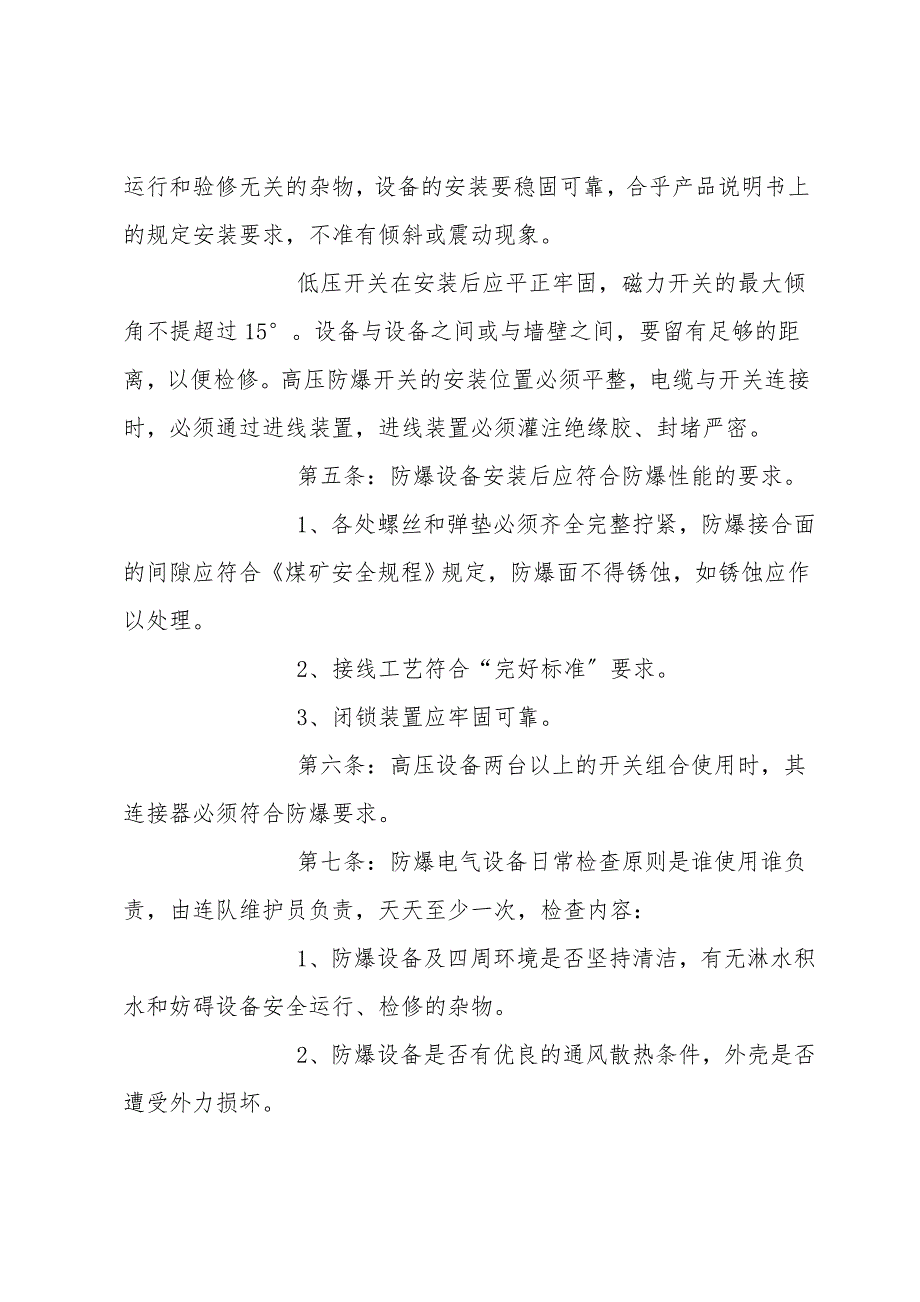 运行和验修无关的杂物，设备的安装要稳固可靠，合乎产品说明书上
的规定安装要求，不准有倾斜或震动现象。
低压开关在安装后应平正牢固，磁力开关的最大倾
角不提超过 15°。设备与设备之间或与墙壁之间，要留有足够的距
离，以便检修。高压防爆开关的安装位置必须平整，电缆与开关连接
时，必须通过进线装置，进线装置必须灌注绝缘胶、封堵严密。
第五条：防爆设备安装后应符合防爆性能的要求。
1、各处螺丝和弹垫必须齐全完整拧紧，防爆接合面
的间隙应符合《煤矿安全规程》规定，防爆面不得锈蚀，如锈蚀应作
以处理。
2、接线工艺符合“完好标准〞要求。
3、闭锁装置应牢固可靠。
第六条：高压设备两台以上的开关组合使用时，其
连接器必须符合防爆要求。
第七条：防爆电气设备日常检查原则是谁使用谁负
责，由连队维护员负责，天天至少一次，检查内容：
1、防爆设备及四周环境是否坚持清洁，有无淋水积
水和妨碍设备安全运行、检修的杂物。
2、防爆设备是否有优良的通风散热条件，外壳是否
遭受外力损坏。